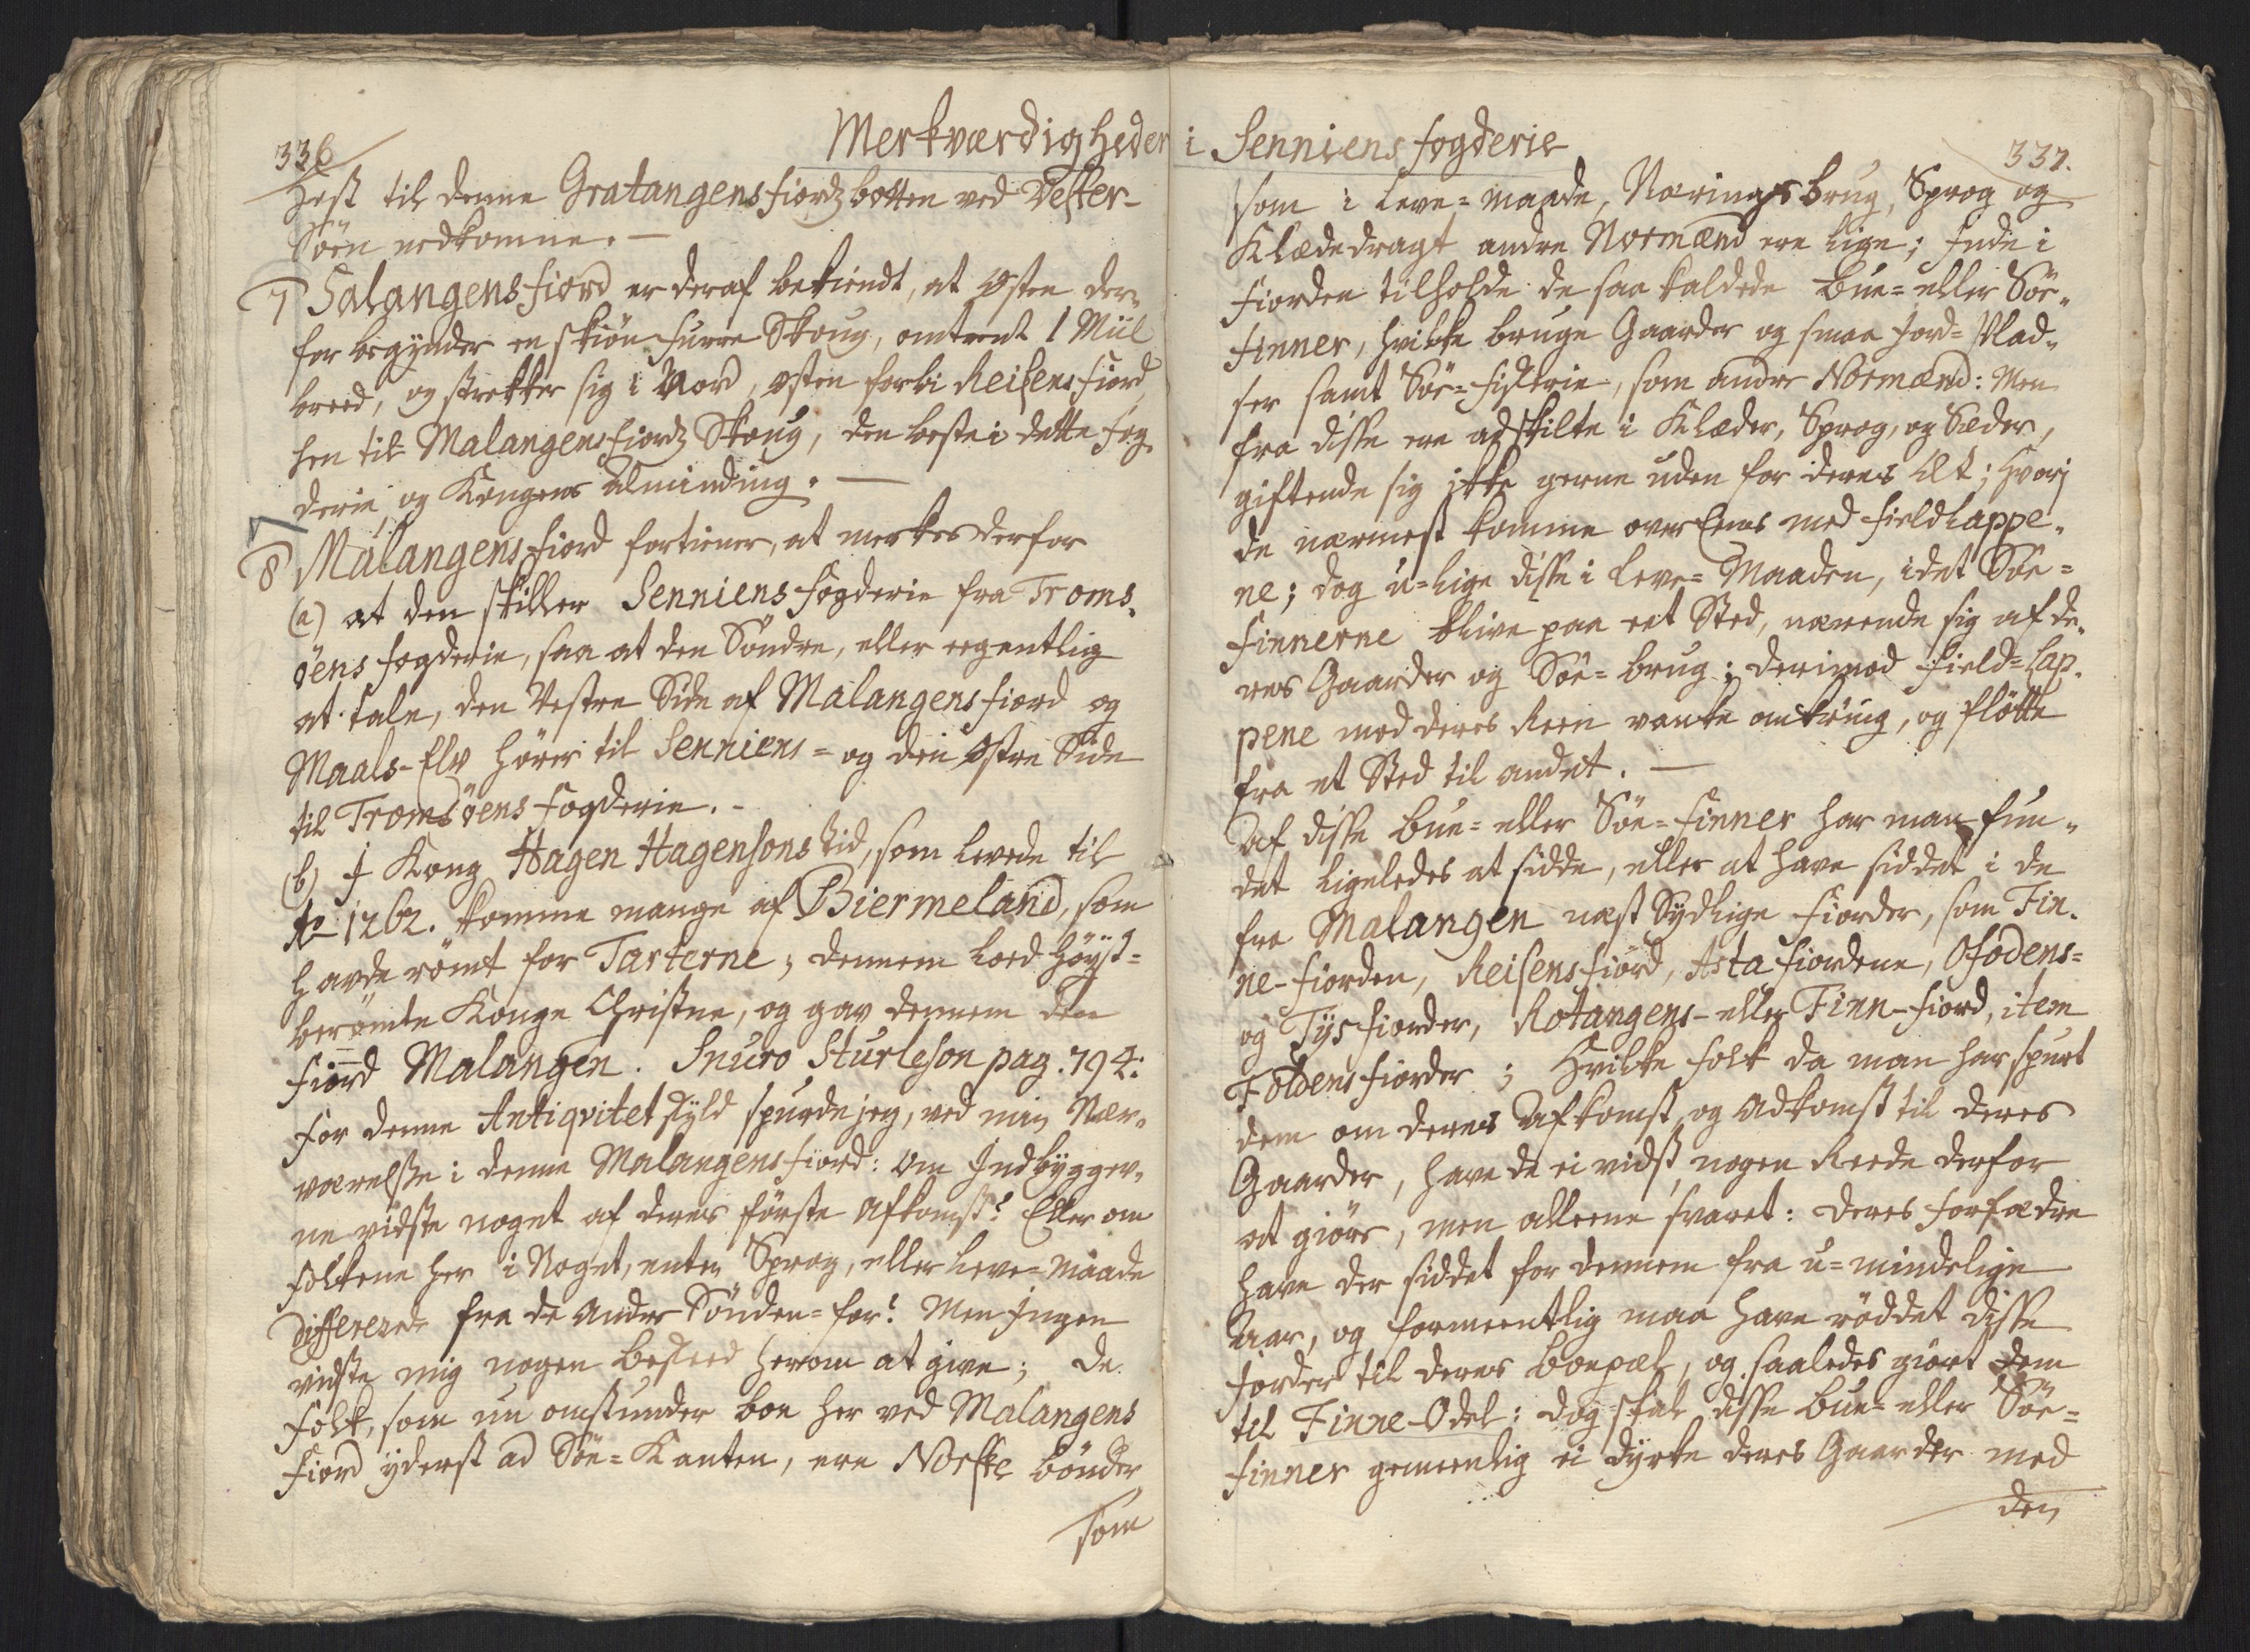 Merkværdigheder i Senniens fogderie
336
Hest til denne Gratangens fiordz botten ved Vester-
Söen nedkomne. —
7 Salangens fiord er deraf bekiendt, at Östen der„
for begynder en skiön furre Skoug, omtrent 1 Miil
breed, og strekker sig i Nord, östen forbi Reisens fiord
hen til Malangens fiordz Skoug, den beste i dette Fog
derie, og Kongens Alminding. —
8 Malangens fiord fortiener, at merkes derfor
(a) at den skiller Senniens fogderie fra Troms„
öens fogderie, saa at den Söndre, eller egentlig
at tale, den Vestre Side af Malangens fiord og
Maals-Elv hörer til Senniens= og den Östre Side
til Tromsöens fogderie. -
(b) I Kong Hagen Hagensons tid, som levede til
Ao 1262. komme mange af Biermeland, som
havde römt for Tarterne; dennem loed Höyst=
berömte Konge Christne, og gav dennem den
fiord Malangen. Snuro Sturleson pag. 794:
For denne Antiqvitet skyld spurde jeg, ved min Nær„
værelsse i denne Malangens fiord: Om Indbygger„
ne vidste noget af deres förste Afkomst? Eller om
folkene her i Noget, enten Sprog, eller Leve=maade
differerede fra de Andre Sönden=for? Men Ingen
vidste mig nogen besked herom at give; De
folk, som nu omstunder boe her ved Malangens
fiord yderst ad Söe=Kanten, ere Norske bönder
som
337.
som i Leve=maade, Næringsbrug, Sprog og
Klædedragt andre Normænd ere lige; Inde i
fiorden tilholde de saa kaldede Bue= eller Söe„
finner, hvilke bruge Gaarder og smaa Jord=Plad„
ser samt Söe=fiskerie, som andre Normænd: Men
fra disse ere adskilte i Klæder, Sprog, og Sæder,
giftende sig ikke gerne uden for deres Æt; hvorj
de nærmest komme overEens med fieldLappe„
ne; dog u=lige disse i Leve=Maaden, idet Söe=
finnerne blive paa eet Sted, nærende sig af de„
res Gaarder og Söe=brug; derimod field=Lap„
pene med deres Reen vanke omkring, og flötte
fra et Sted til andet. —
Af disse Bue= eller Söe=finner har man fun„
det ligeledes at sidde, eller at have siddet i de
fra Malangen næst Sydlige fiorder, som Fin„
ne-fiorden, Reisens fiord, Astafiordene, Ofodens=
og Tys fiorder, Rotangens- eller Finn-fiord, item
Foldens fiorder; Hvilke folk da man har spurt
dem om deres Afkomst, og Adkomst til deres
Gaarder, have de ei vidst nogen Reede derfor
at giöre, men alleene svaret: Deres forfædre
have der siddet for dennem fra u=mindelige
Aar, og formeentlig maa have röddet disse
Jorder til deres boepæl, og saaledes giort dem
til Finne-Odel: dog skal disse Bue= eller Söe=
finner gemeenlig ei dyrke deres Gaarder med
den